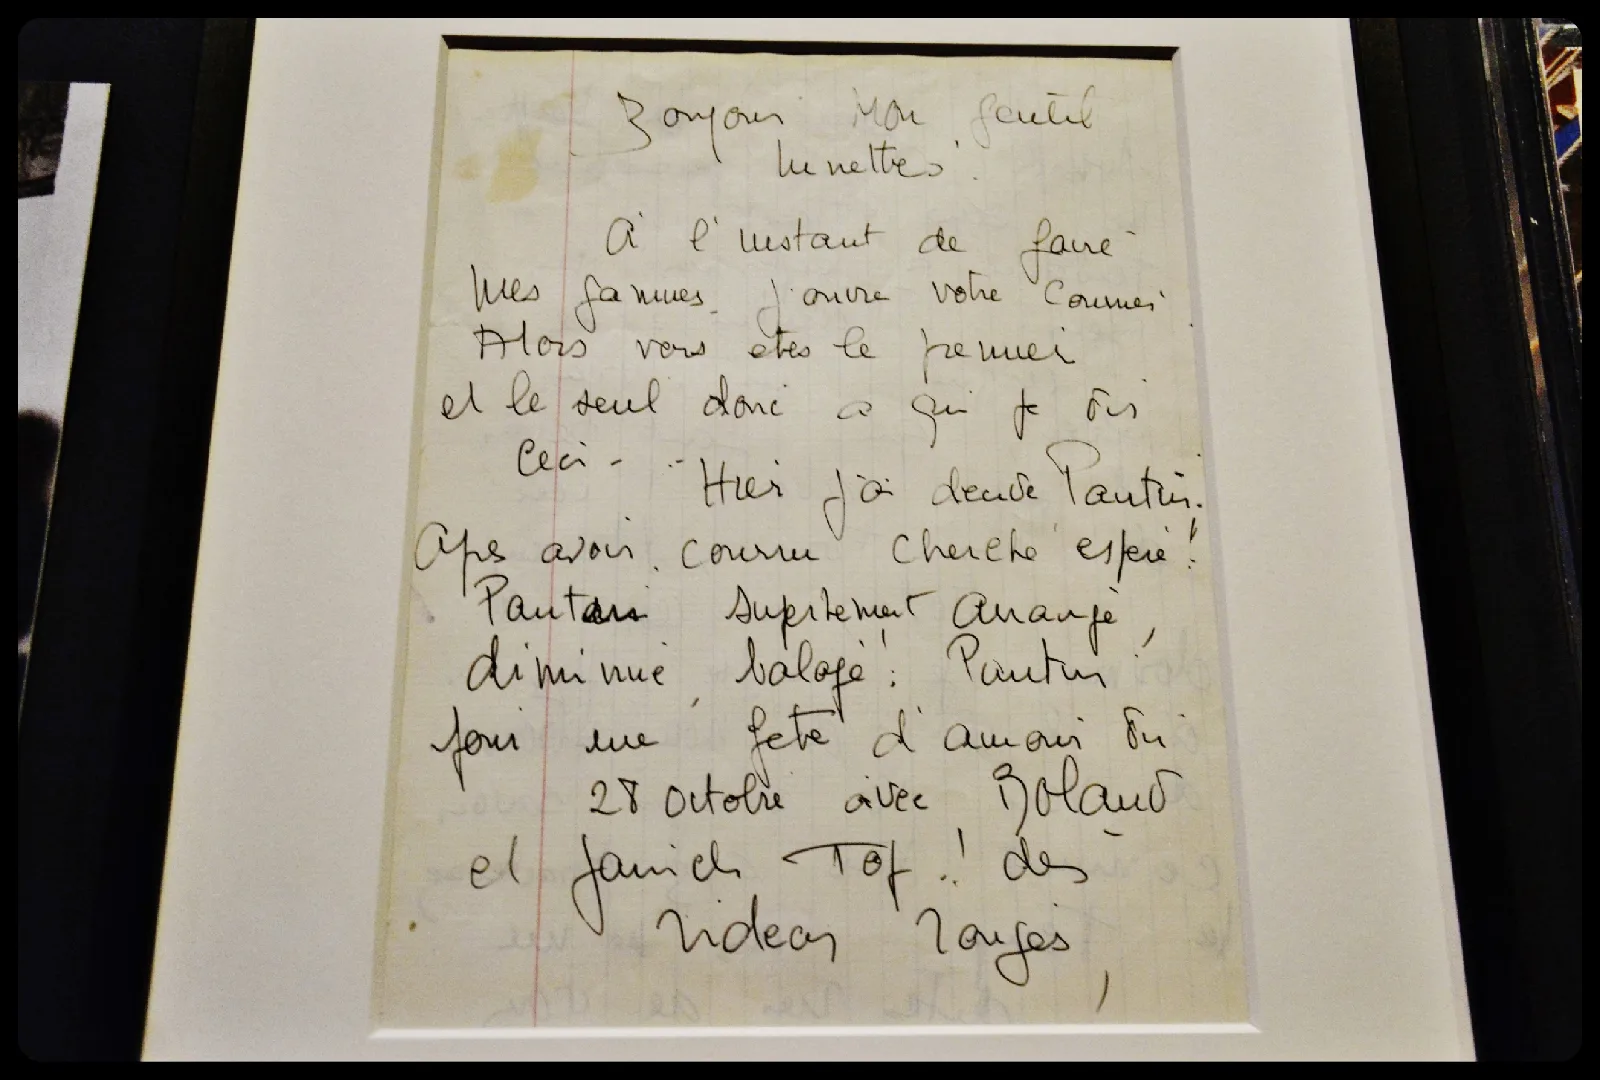 Bonjour Mon gentil
lunettes.
A l'instant de faire
mes gammes. j'ouvre votre courrier.
Alors vous etes le premier
et le seul donc a qui je dis
Ceci - ..
Hier j'ai Pantin.
Apres avoir courru cherché espéré!
Pantin arrangé,
diminué, balayé! Pantin
pour une fete d'amour du
28 octobre avec Roland
et Janick Top!! des
rideaux rouges,